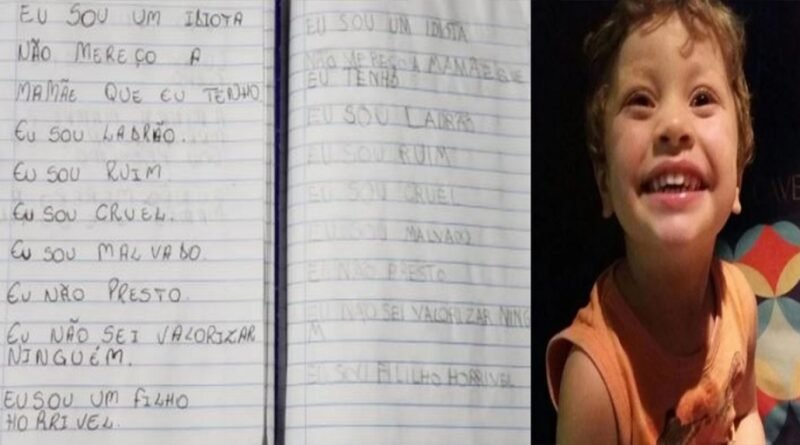 EU SOU UM IDIOTA
NÃO MEREÇO A
MAMÃE QUE EU TENHO
EU SOU LADRÃO.
EU SOU RUIM.
EU SOU CRUEL.
EU SOU MALVADO.
EU NÃO PRESTO.
EU NÃO SEI VALORIZAR
NINGUÉM.
EU SOU UM FILHO
HORRIVEL.
EU SOU UM IDIOTA
NÃO MEREÇO A MAMÃE QUE
EU TENHO
EU SOU LADRÃO
EU SOU RUIM
EU SOU CRUEL
EU SOU MALVADO
EU NÃO PRESTO
EU NÃO SEI VALORIZAR NING
M
EU SOU FILILHO HORRIVEL